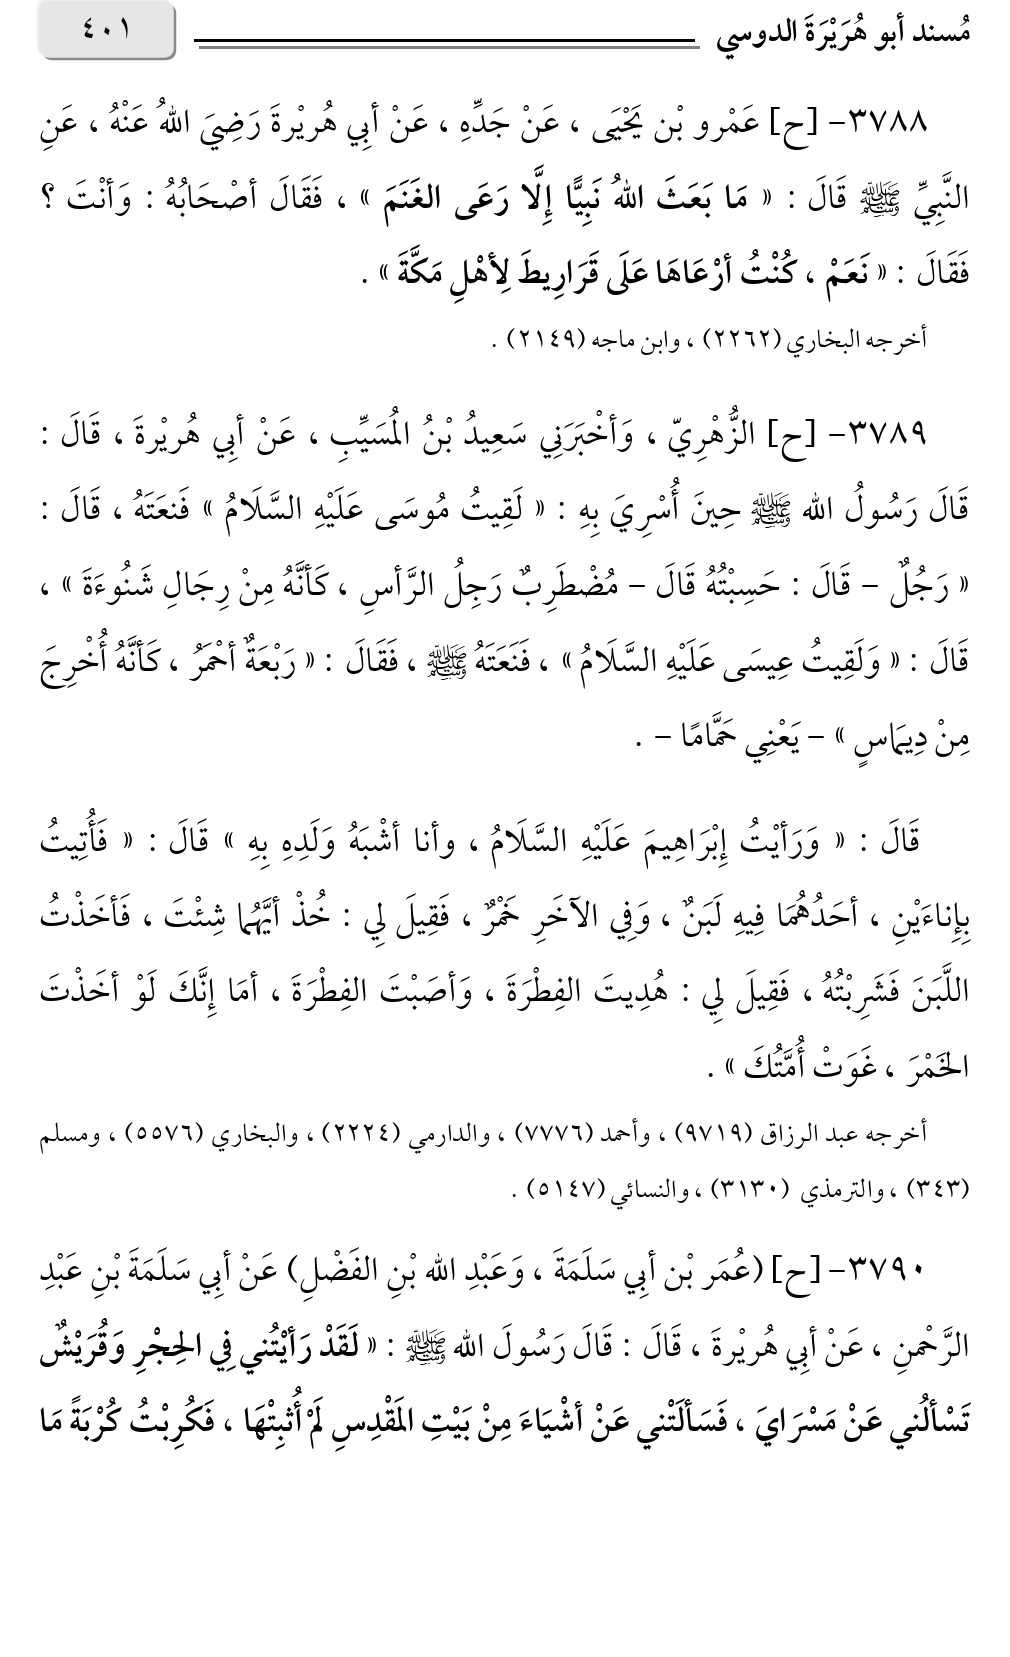 مُسند أبو هُرَيْرَةَ الدوسي
٤٠١
٣٧٨٨- [ح] عَمْرو بْن يَحْيَى ، عَنْ جَدِّهِ ، عَنْ أبِي هُريْرةَ رَضِيَ اللهُ عَنْهُ ، عَنِ
النَّبِيِّ ﷺ قَالَ : « مَا بَعَثَ اللهُ نَبِيًّا إِلَّا رَعَى الغَنَمَ » ، فَقَالَ أصْحَابُهُ : وَأنْتَ ؟
فَقَالَ : « نَعَمْ ، كُنْتُ أرْعَاهَا عَلَى قَرَارِيطَ لِأهْلِ مَكَّةَ » .
أخرجه البخاري (٢٢٦٢) ، وابن ماجه (٢١٤٩) .
٣٧٨٩- [ح] الزُّهْرِيّ ، وَأخْبَرَنِي سَعِيدُ بْنُ المُسَيِّبِ ، عَنْ أبِي هُريْرةَ ، قَالَ :
قَالَ رَسُولُ الله ﷺ حِينَ أُسْرِيَ بِهِ : « لَقِيتُ مُوسَى عَلَيْهِ السَّلَامُ » فَنعَتَهُ ، قَالَ :
« رَجُلٌ – قَالَ : حَسِبْتُهُ قَالَ – مُضْطَرِبٌ رَجِلُ الرَّأسِ ، كَأنَّهُ مِنْ رِجَالِ شَنُوءَةَ » ،
قَالَ : « وَلَقِيتُ عِيسَى عَلَيْهِ السَّلَامُ » ، فَنَعَتَهُ ﷺ ، فَقَالَ : « رَبْعَةٌ أحْمَرُ ، كَأنَّهُ أُخْرِجَ
مِنْ دِيمَاسٍ » – يَعْنِي حَمَّامًا – .
قَالَ : « وَرَأيْتُ إِبْرَاهِيمَ عَلَيْهِ السَّلَامُ ، وأنا أشْبَهُ وَلَدِهِ بِهِ » قَالَ : « فَأُتِيتُ
بِإِناءَيْنِ ، أحَدُهُمَا فِيهِ لَبَنٌ ، وَفِي الآخَرِ خَمْرٌ ، فَقِيلَ لِي : خُذْ أيَّهُمَا شِئْتَ ، فَأخَذْتُ
اللَّبَنَ فَشَرِبْتُهُ ، فَقِيلَ لِي : هُدِيتَ الفِطْرَةَ ، وَأصَبْتَ الفِطْرَةَ ، أمَا إِنَّكَ لَوْ أخَذْتَ
الخَمْرَ ، غَوَتْ أُمَّتُكَ » .
أخرجه عبد الرزاق (٩٧١٩) ، وأحمد (٧٧٧٦) ، والدارمي (٢٢٢٤) ، والبخاري (٥٥٧٦) ، ومسلم
(٣٤٣) ، والترمذي (٣١٣٠) ، والنسائي (٥١٤٧) .
٣٧٩٠- [ح] (عُمَر بْن أبِي سَلَمَةَ ، وَعَبْدِ الله بْنِ الفَضْلِ) عَنْ أبِي سَلَمَةَ بْنِ عَبْدِ
الرَّحْمنِ ، عَنْ أبِي هُريْرةَ ، قَالَ : قَالَ رَسُولَ الله ﷺ : « لَقَدْ رَأيْتُني فِي الحِجْرِ وَقُرَيْشٌ
تَسْألُني عَنْ مَسْرَايَ ، فَسَألَتْني عَنْ أشْيَاءَ مِنْ بَيْتِ المَقْدِسِ لَمْ أُثبِتْهَا ، فَكُرِبْتُ كُرْبَةً مَا